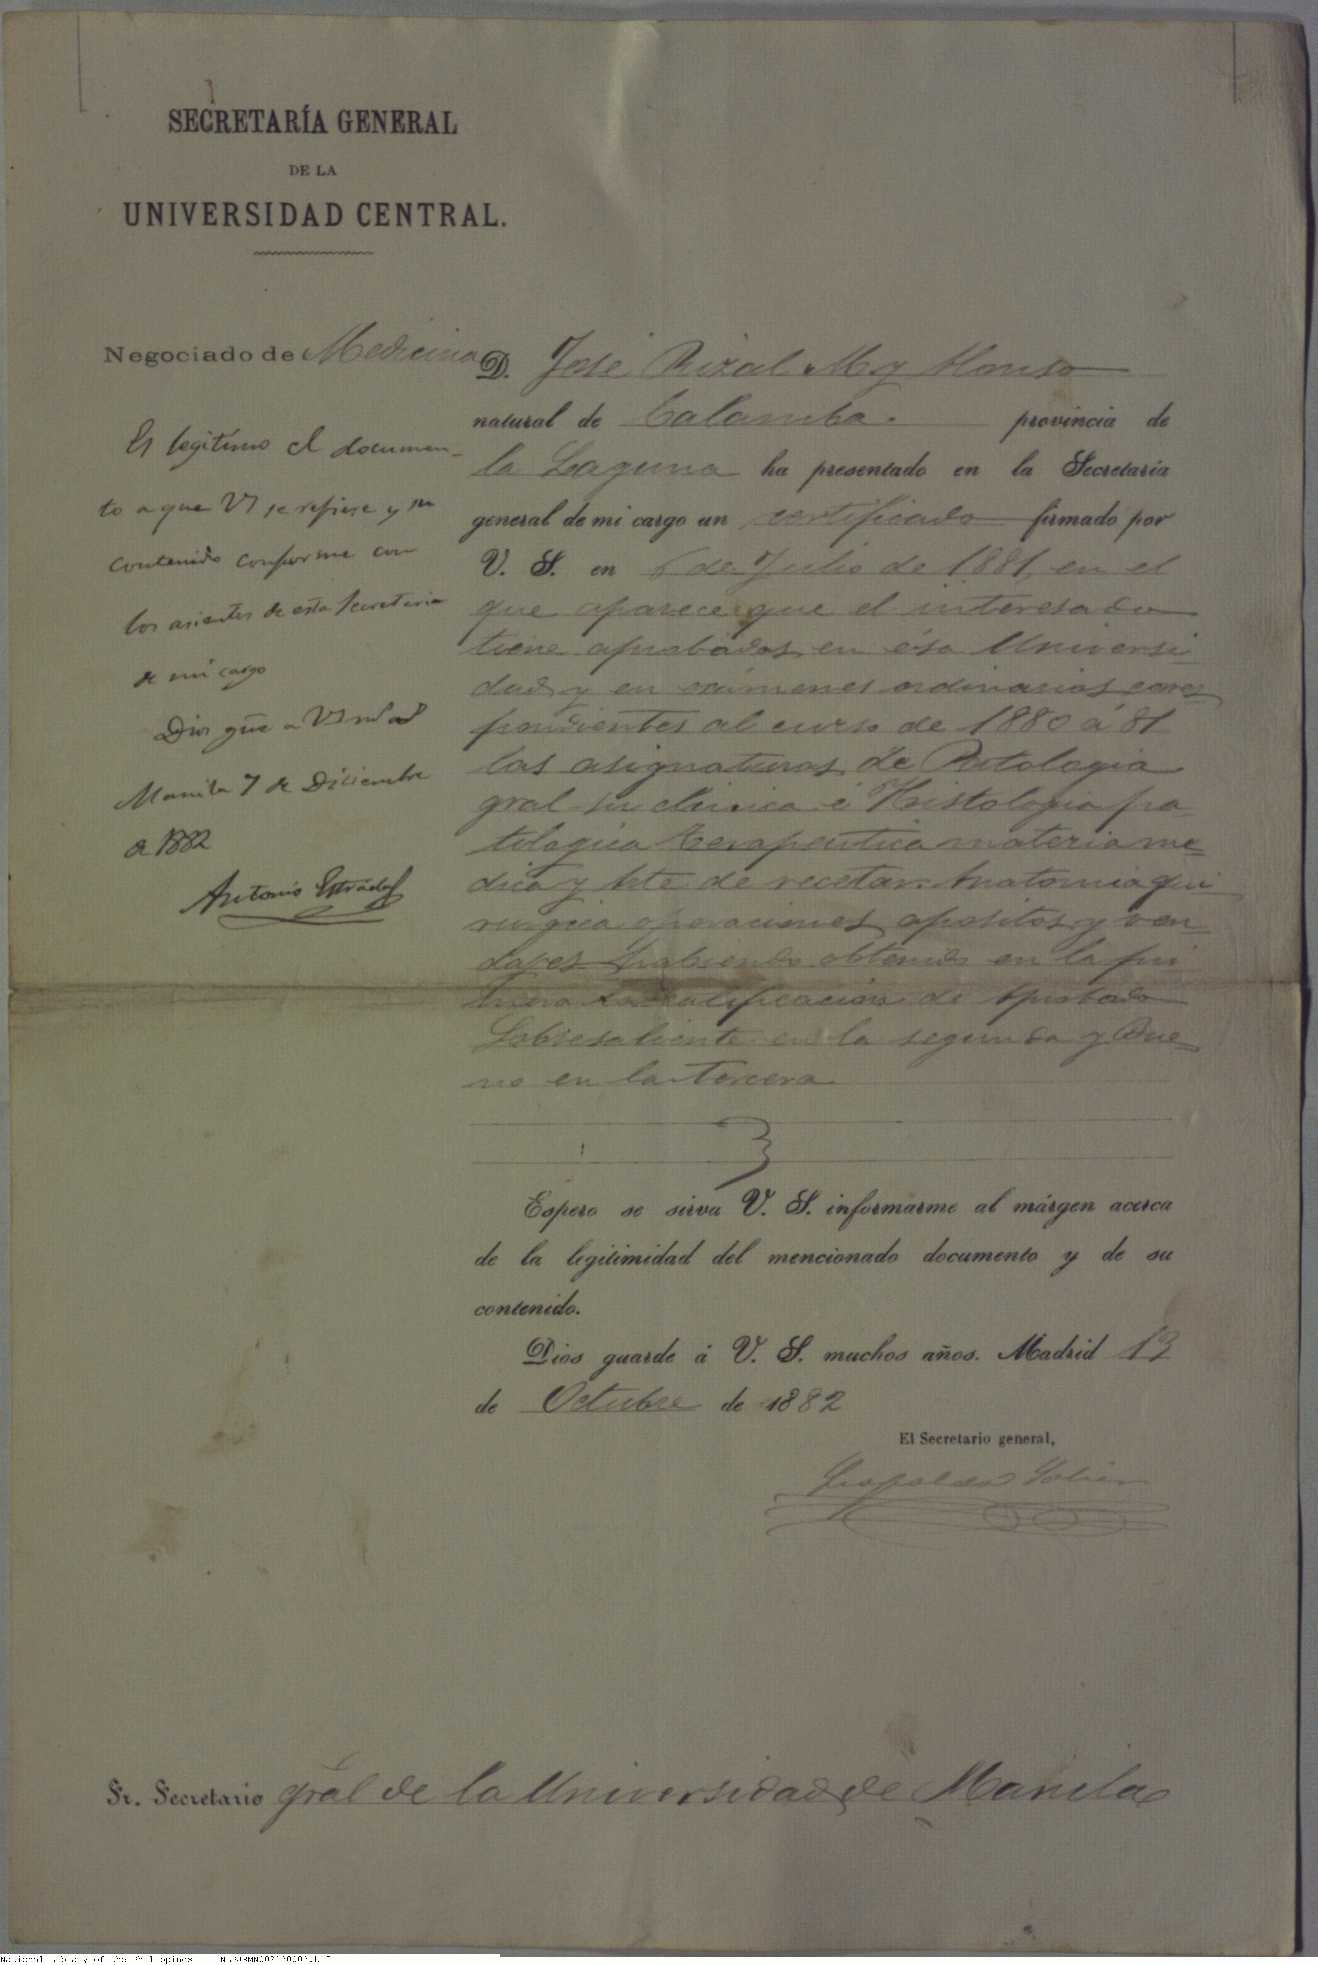 SECRETARÍA GENERAL
DE LA
UNIVERSIDAD CENTRAL.
Negociado de Medicina
Es legitimo el documen-
to a que VS se refiere y su
contenido conforme con
los asientos de esta Secretaria
de mi cargo
Dios gue a VS ms as
Manila 7 de Diciembre
de 1882
Antonio Estrada
D. José Rizal Mer y Alonso
natural de Calamba. provincia de
la Laguna ha presentado en la Secretaría
general de mi cargo un certificado firmado por
V. S. en 6 de Julio de 1881, en el
que aparece que el interesado
tiene aprobadas en ésa Universi-
dad y en exámenes ordinarios corres
pondientes al curso de 1880 á 81
las asignaturas de Patologia
gral su clinica é Histologia pa-
tologica Terapeutica materia me-
dica y Arte de recetar. Anatomia qui
rurgica operaciones apositos y ven-
dages habiendo obtenido en la pri
mera la calificacion de Aprobado
Sobresaliente en la segunda y Bue-
no en la tercera
Espero se sirva V. S. informarme al márgen acerca
de la legitimidad del mencionado documento y de su
contenido.
Dios guarde á V. S. muchos años. Madrid 13
de Octubre de 1882
El Secretario general,
Leopoldo Solier
Sr. Secretario gral de la Universidad de Manila
National Library of the Philippines